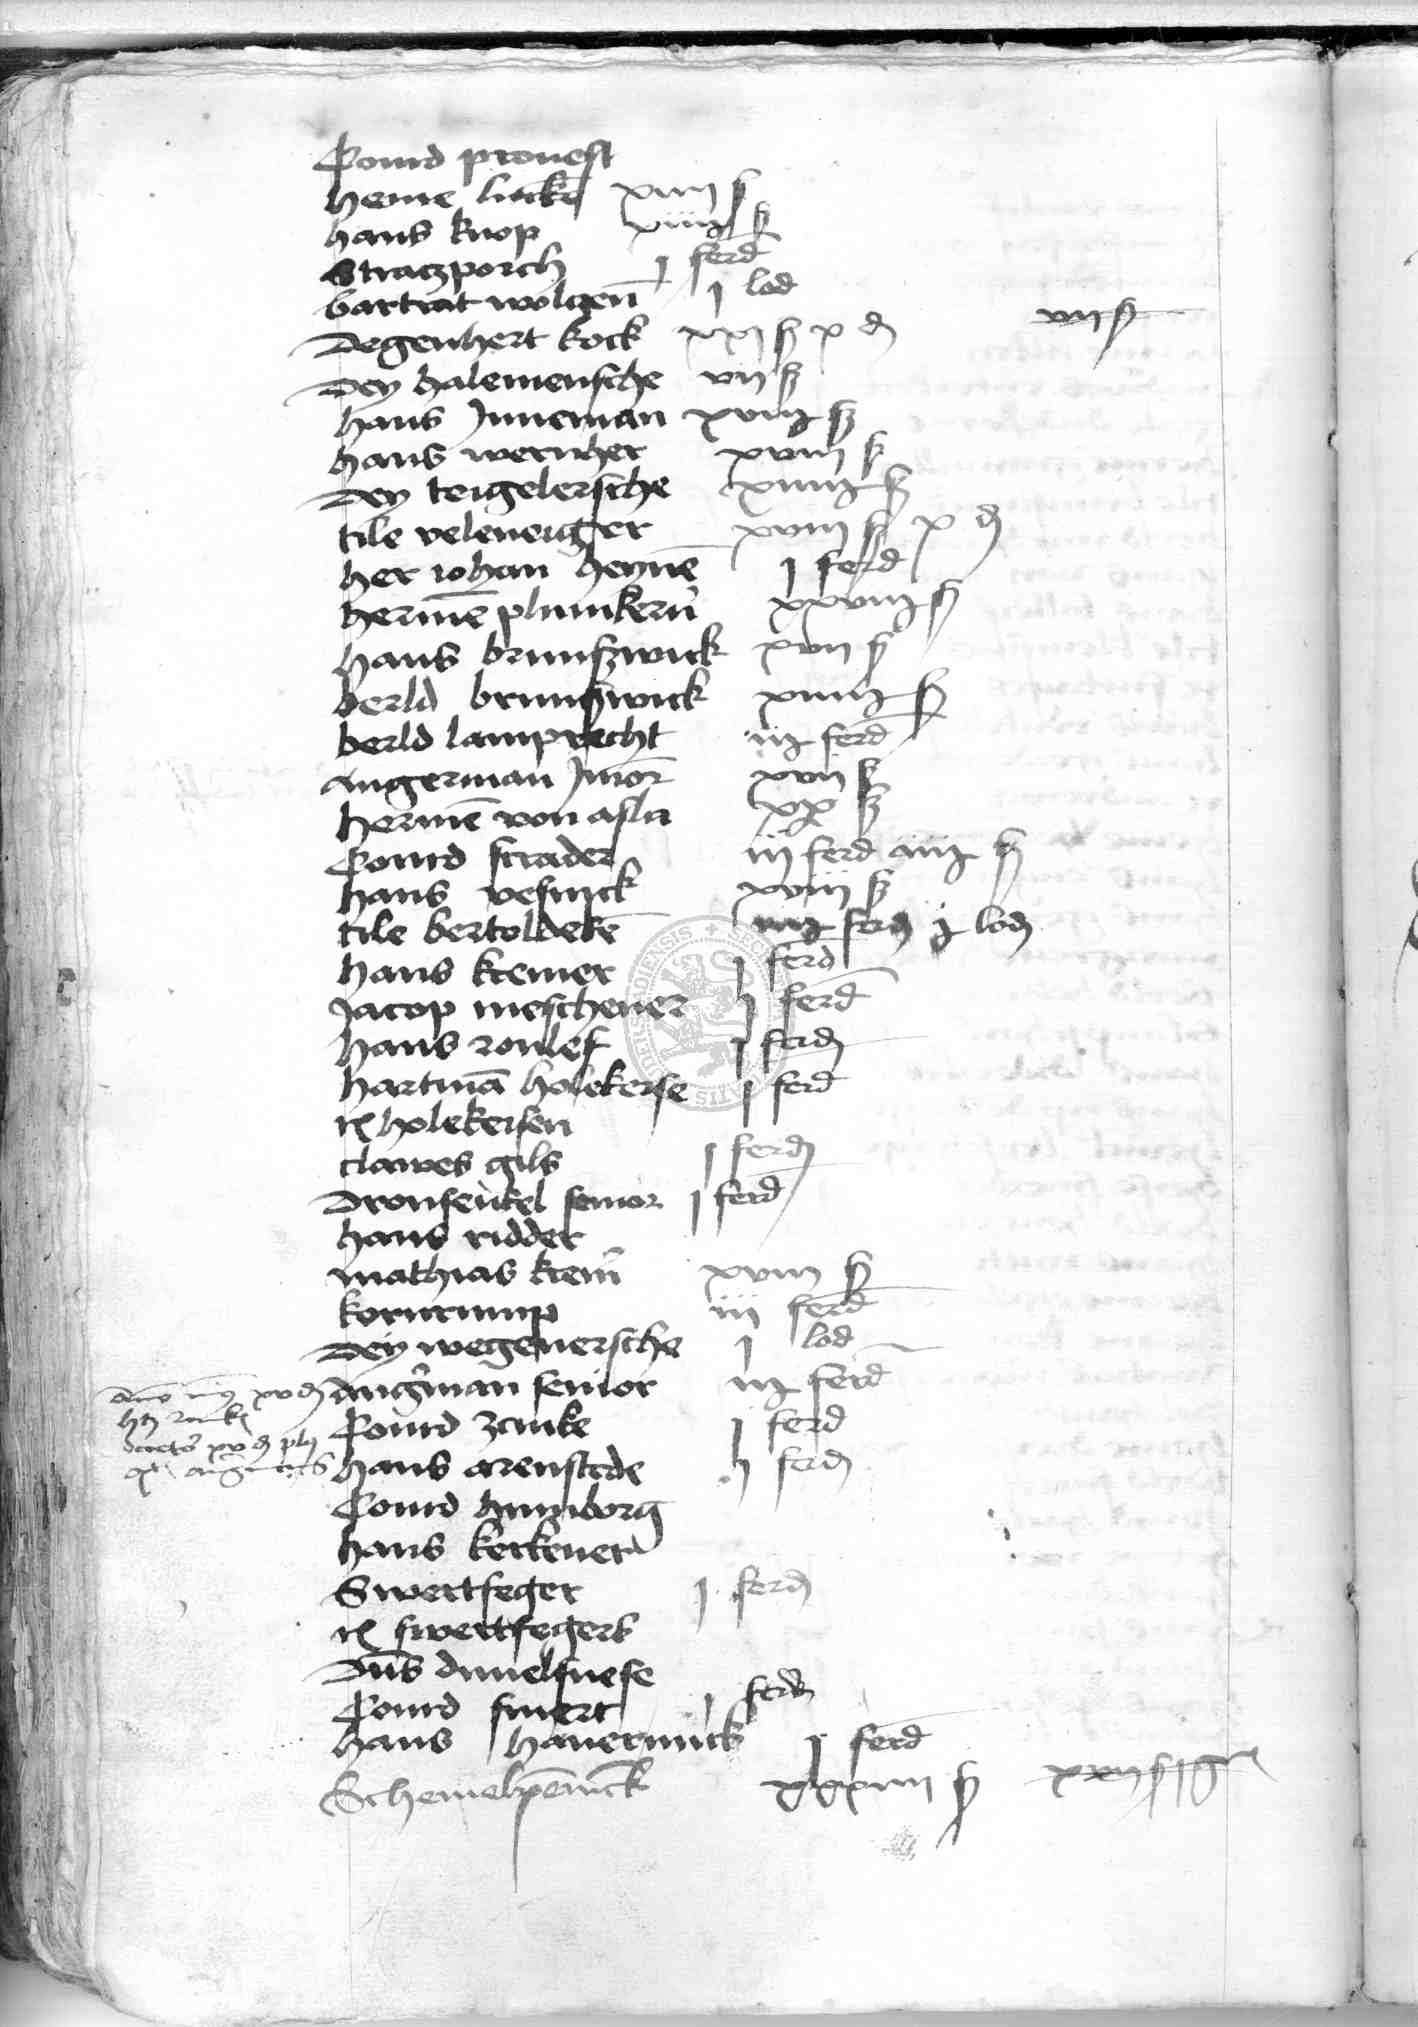 Conrd prouest
Henne lucken xviij ß
Hans knop xiiij ß
Straczporch j ferd
bartrat wolgen j lod
Degenhert kock xxj ß x d vij ß
Dey halemensche vij ß
Hans Junneman xviij ß
Hans wernher xviij ß
Dey teigelersche xiiij ß
tile veleneiger xviij ß x d
Her iohan heynen j ferd
Hermen plunnkern xxviij ß
Hans brunßwick xvij ß
berld brunßwick xiiij ß
berld lamprecht iij ferd
Angerman Junior xvij ß
Hermen von aslu xx ß
Conrd scrader iij ferd iiij ß
Hans vesnick xviij ß
tile bertoldeken ferd j lod
Hans kremer j ferd
Jacop meschener ij ferd
Hans roulef j ferd
Hartman holekerse j ferd
rel holekersen
clawes gils j ferd
Dronfenkel senior j ferd
Hans ridder
mathias kremer xviij ß
kornrump iij ferd
Dey wegenersche j lod
Angerman senior iij ferd
Conrd zcinke j ferd
Hans arenstede ij ferd
Conrd hunnborg
Hans kerkener
Swertfeger j ferd
rel swertfegers
Dns duuelsnese
Conrd swert j ferd
Hans hauernick j ferd
Schemelpennick xxxiiij ß